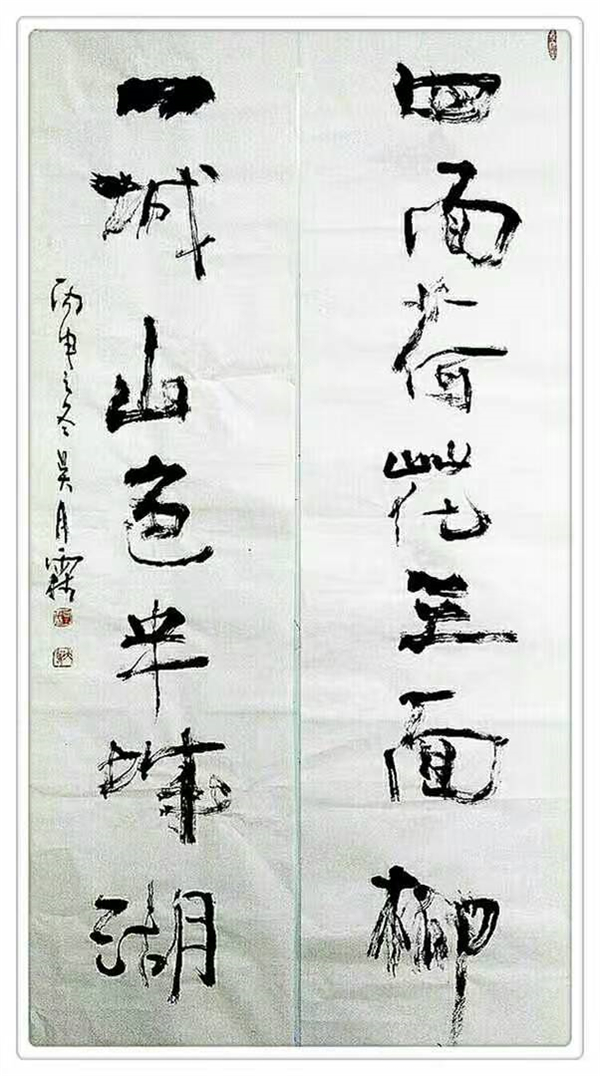 四面荷花三面柳
一城山色半城湖
丙申之冬吴月霖